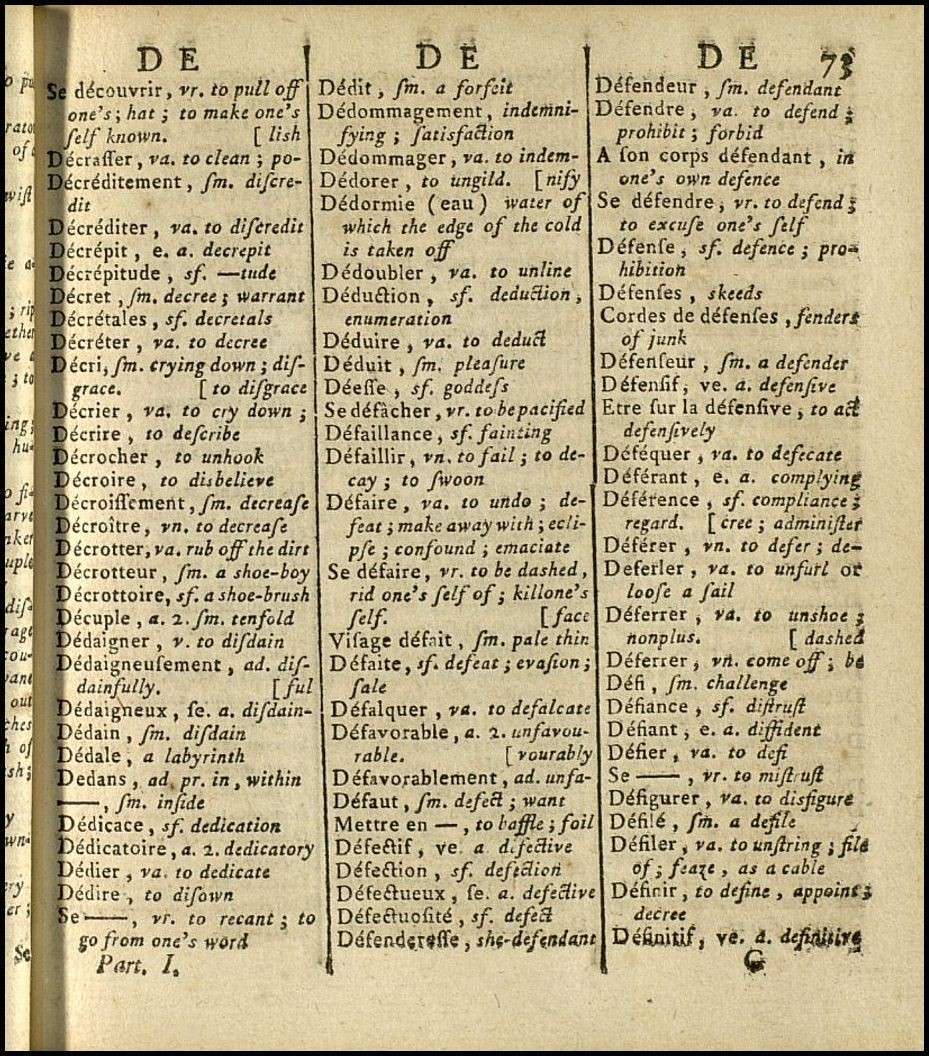 DE
Se découvrir, vr. to pull off
one's; hat; to make one's
ſelf known. [liſh
Décraſſer, va. to clean; po-
Décréditement, ſm. diſcre-
dit
Décréditer, va. to diſcredit
Décrépit, e. a. decrepit
Décrépitude, sf. —tude
Décret, ſm. decree; warrant
Décrétales, sf. decretals
Décréter, va. to decree
Décri, ſm. crying down; diſ-
grace. [to diſgrace
Décrier, va. to cry down;
Décrire, to deſcribe
Décrocher, to unhook
Décroire, to disbelieve
Décroiſſement, ſm. decreaſe
Décroître, vn. to decreaſe
Décrotter, va. rub off the dirt
Décrotteur, ſm. a shoe-boy
Décrottoire, sf. a shoe-brush
Décuple, a. 2. ſm. tenfold
Dédaigner, v. to diſdain
Dédaigneuſement, ad. diſ-
dainfully. [ful
Dédaigneux, ſe. a. diſdain-
Dédain, ſm. diſdain
Dédale, a labyrinth
Dedans, ad. pr. in, within
——, ſm. inſide
Dédicace, sf. dedication
Dédicatoire, a. 2. dedicatory
Dédier, va. to dedicate
Dédire, to diſown
Se ——, vr. to recant; to
go from one's word
Part. I.
DE
Dédit, ſm. a forfeit
Dédommagement, indemni-
fying; ſatisfaction
Dédommager, va. to indem-
Dédorer, to ungild. [nify
Dédormie (eau) water of
which the edge of the cold
is taken off
Dédoubler, va. to unline
Déduction, sf. deduction,
enumeration
Déduire, va. to deduct
Déduit, ſm. pleaſure
Déeſſe, sf. goddeſs
Se défâcher, vr. to be pacified
Défaillance, sf. fainting
Défaillir, vn. to fail; to de-
cay; to ſwoon
Défaire, va. to undo; de-
feat; make away with; ecli-
pſe; confound; emaciate
Se défaire, vr. to be dashed,
rid one's ſelf of; kill one's
ſelf. [face
Viſage défait, ſm. pale thin
Défaite, sf. defeat; evaſion;
ſale
Défalquer, va. to defalcate
Défavorable, a. 2. unfavou-
rable. [vourably
Défavorablement, ad. unfa-
Défaut, ſm. defect; want
Mettre en —, to baffle; foil
Défectif, ve. a. defective
Défection, sf. defection
Défectueux, ſe. a. defective
Défectuoſité, sf. defect
Défendereſſe, she-defendant
DE 73
Défendeur, ſm. defendant
Défendre, va. to defend;
prohibit; forbid
A ſon corps défendant, in
one's own defence
Se défendre, vr. to defend;
to excuſe one's ſelf
Défenſe, sf. defence; pro-
hibition
Défenſes, skeeds
Cordes de défenſes, fenders
of junk
Défenſeur, ſm. a defender
Défenſif, ve. a. defenſive
Etre ſur la défenſive, to act
defenſively
Déféquer, va. to defecate
Déférant, e. a. complying
Déférence, sf. compliance;
regard. [cree; adminiſter
Déférer, vn. to defer; de-
Deferler, va. to unfurl or
looſe a ſail
Déferrer, va. to unshoe;
nonplus. [dashed
Déferrer, vn. come off; be
Défi, ſm. challenge
Défiance, sf. diſtruſt
Défiant, e. a. diffident
Défier, va. to defi
Se ——, vr. to miſtruſt
Défigurer, va. to disfigure
Défilé, ſm. a defile
Défiler, va. to unſtring; file
of; feaze, as a cable
Définir, to define, appoint;
decree
Définitif, ve. a. definitive
G